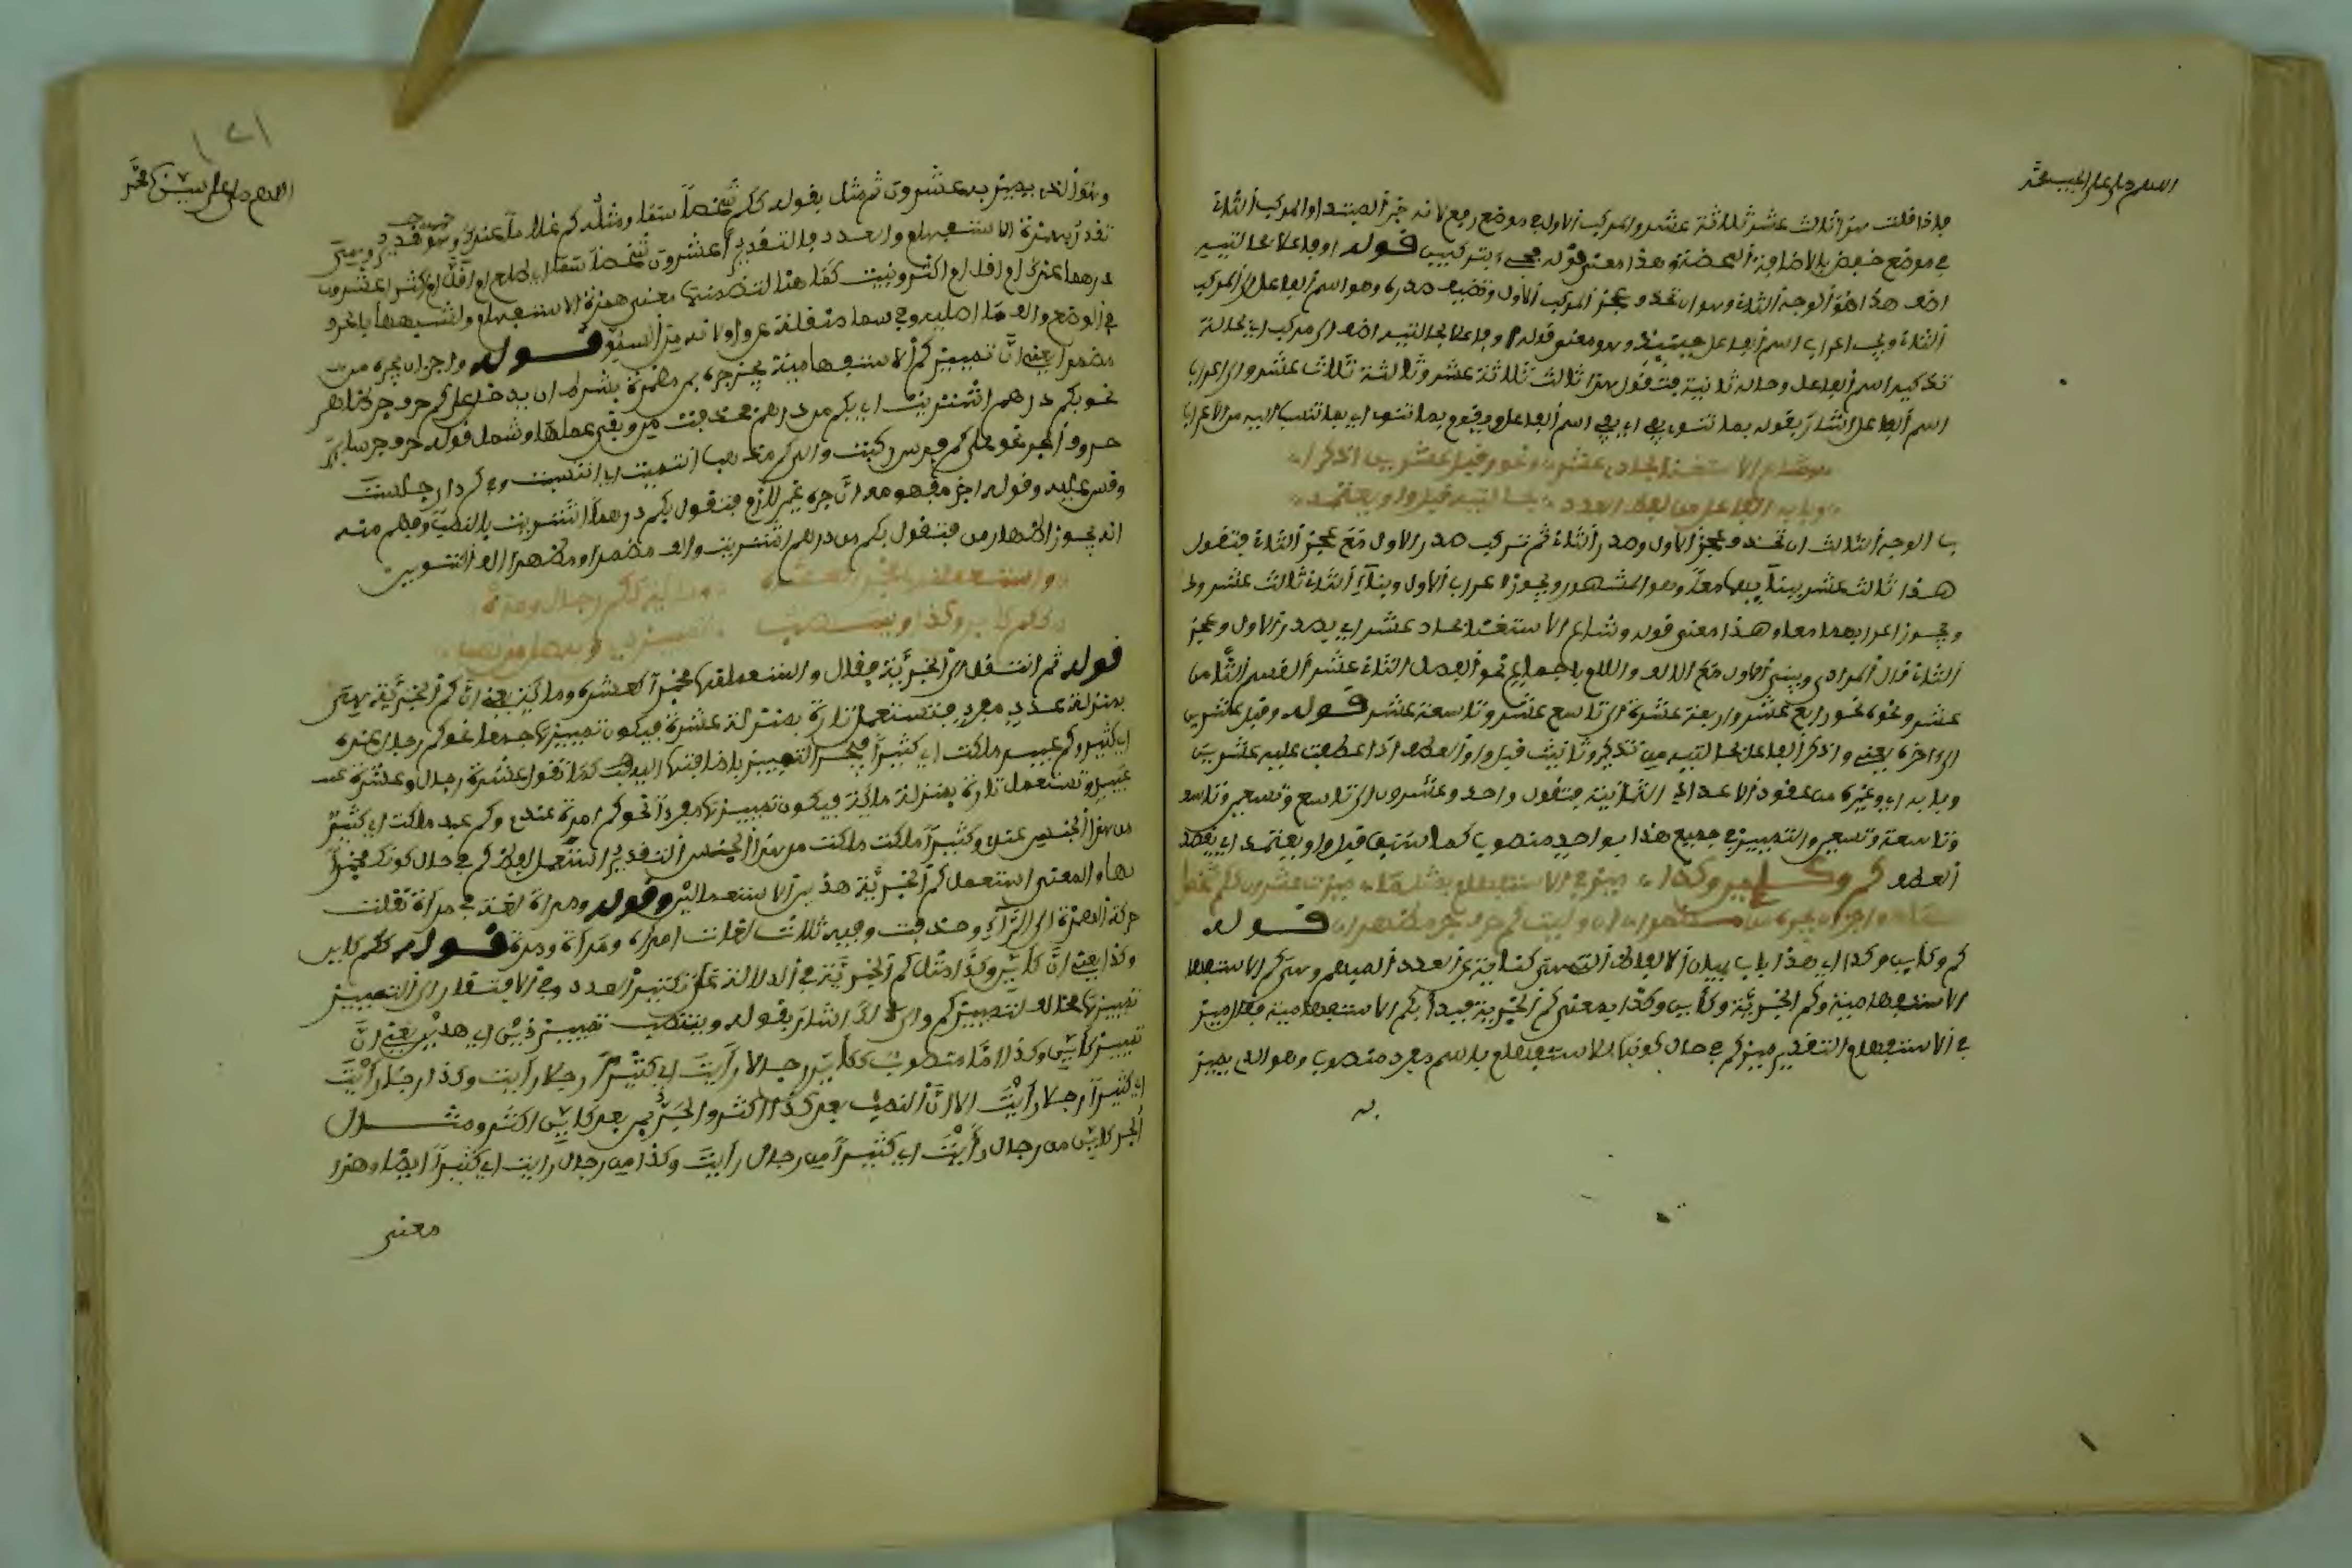 اللهم صل على الحبيب محمد
فإذا قلت هذا ثالث عشر ثلاثة عشر والمركب الأول في موضع رفع لأنه خبر المبتدأ والمركب الثاني
في موضع خفض بالإضافة المحضة وهذا معنى قوله يجيء بتركيبين قوله أو فاعلا بحالتيه
أضف هذا هو الوجه الثاني وهو أن تحذف عجز المركب الأول وتضيف صدره وهو اسم الفاعل إلى المركب
الثاني وفي إعراب اسم الفاعل حينئذ وهو معنى قوله أو فاعلا بحالتيه أضف إلى مركب أي بحالة
تذكير اسم الفاعل وحالة تأنيثه فتقول هذا ثالث ثلاثة عشر وثالثة ثلاث عشر وإلى إعراب
اسم الفاعل أشار بقوله بما تنوي يفي أي يفي اسم الفاعل
وشاع الاستغنا بحادي عشرا ونحوه وقبل عشرين اذكرا
وبابه الفاعل من لفظ العدد بحالتيه قبل واو يعتمد
الوجه الثالث أن تحذف عجز الأول وصدر الثاني ثم تركب صدر الأول مع عجز الثاني فتقول
هذا ثالث عشر ببنائهما معا وهو المشهور ويجوز إعراب الأول وبناء الثاني ثالث عشر
ويجوز إعرابهما معا وهذا معنى قوله وشاع الاستغنا بحادي عشر أي بصدر الأول وعجز
الثاني قال المرادي ويبنى الأول مع الألف واللام بإجماع نحو الفصل الثاني عشر القسم الثامن
عشر ونحوه نحو رابع عشر ورابعة عشرة إلى تاسع عشر وتاسعة عشر قوله وقبل عشرين
إلى آخره يعني واذكر الفاعل بحالتيه من تذكير وتأنيث قبل واو العطف إذا عطفت عليه عشرين
وبابه أي وغيره من عقود الأعداد الثمانية فتقول واحد وعشرون إلى تاسع وتسعين وتاسعة
وتاسعة وتسعين والتمييز في جميع هذا بواحد منصوب كما سبق قبل واو يعتمد أي يقصد
العطف كم وكأين وكذا ميز في الاستفهام كم بمثل ما ميزت عشرين ككم شخصا
سما وأجز أن تجره من مضمرا إن وليت كم حرف جر مظهرا قوله
كم وكأين وكذا أي هذا باب بيان الألفاظ التي هي كناية عن العدد المبهم وهي كم الاستفها
الاستفهامية وكم الخبرية وكأين وكذا بمعنى كم الخبرية فبدأ بكم الاستفهامية فقال ميز
في الاستفهام التقدير ميز كم في حال كونها للاستفهام باسم مفرد منصوب وهو الذي يميز
به
١٢١
اللهم صل على سيدنا محمد
وهو الذي يميز به عشرون ثم مثل بقوله ككم شخصا سما ومثله كم غلاما عندك
تقدر بهمزة الاستفهام والعدد فالتقدير أعشرون شخصا سما أي طلع أو أقل أو أكثر أعشرون
درهما عندك أو أقل أو أكثر وبنيت كم هنا لتضمنها معنى همزة الاستفهام ولشبهها بالحرف
في الوضع والف سما أصلية وهي سما منقلبة عن واو لأنه من السمو قوله وأجز أن تجره من
مضمرا يعني أن تمييز كم الاستفهامية يجوز جره بمن مضمرة بشرط أن يدخل على كم حرف جر ظاهر
نحو بكم درهم اشتريت أي بكم من درهم فحذفت من وبقي عملها وشمل قوله حرف جر سائر
حروف الجر نحو على كم فرس ركبت وإلى كم مذهب انتميت أي انتسبت وفي كم دار جلست
وقس عليه وقوله أجز مفهومه أن جره غير لازم فتقول بكم درهما اشتريت بالنصب وفهم منه
أنه يجوز إظهار من فتقول بكم من درهم اشتريت والف مضمرا ومظهرا الف التنوين
واستعملنها مخبرا كعشرة أو مائة ككم رجال أو مره
ككم كأين وكذا وينتصب تمييز ذين أو به صل من تصب
قوله ثم انتقل إلى الخبرية فقال واستعملنها مخبرا كعشرة ومائة يعني أن كم الخبرية هي
بمنزلة عدد مفرد فتستعمل تارة بمنزلة عشرة فيكون تمييزها جمعا نحو كم رجال عندي
أي كثير وكم عبيد ملكت أي كثيرا فيجر التمييز بإضافتها إليه كما تقول عشرة رجال وعشرة
عبيد وتستعمل تارة بمنزلة مائة فيكون تمييزها مفردا نحو كم امرأة عندي وكم عبد ملكت أي كثير
من هذا الجنس عندي وكثيرا ملكت من هذا الجنس التقدير استعمل لفظ كم في حال كونك مخبرا
بها والمعنى استعمل كم الخبرية هذين الاستعمالين وقوله ومرة لغة في مرأة نقلت
حركة الهمزة إلى الراء وحذفت وفيه ثلاث لغات امرأة ومرأة ومرة قوله ككم كأين
وكذا يعني أن كأين وكذا مثل كم الخبرية في الدلالة على تكثير العدد وفي الافتقار إلى التمييز
تمييزها مخالف لتمييز كم وإلى ذلك أشار بقوله وينتصب تمييز ذين أي هذين يعني أن
تمييز كأين وكذا إما منصوب ككأين رجلا رأيت أي كثيرا رجلا رأيت وكذا رجلا رأيت
أي كثيرا رجلا رأيت إلا أن النصب بعد كذا أكثر والجر بمن بعد كأين أكثر ومثال
الجر كأين من رجال رأيت أي كثيرا من رجال رأيت وكذا من رجال رأيت أي كثيرا أيضا وهذا
معنى